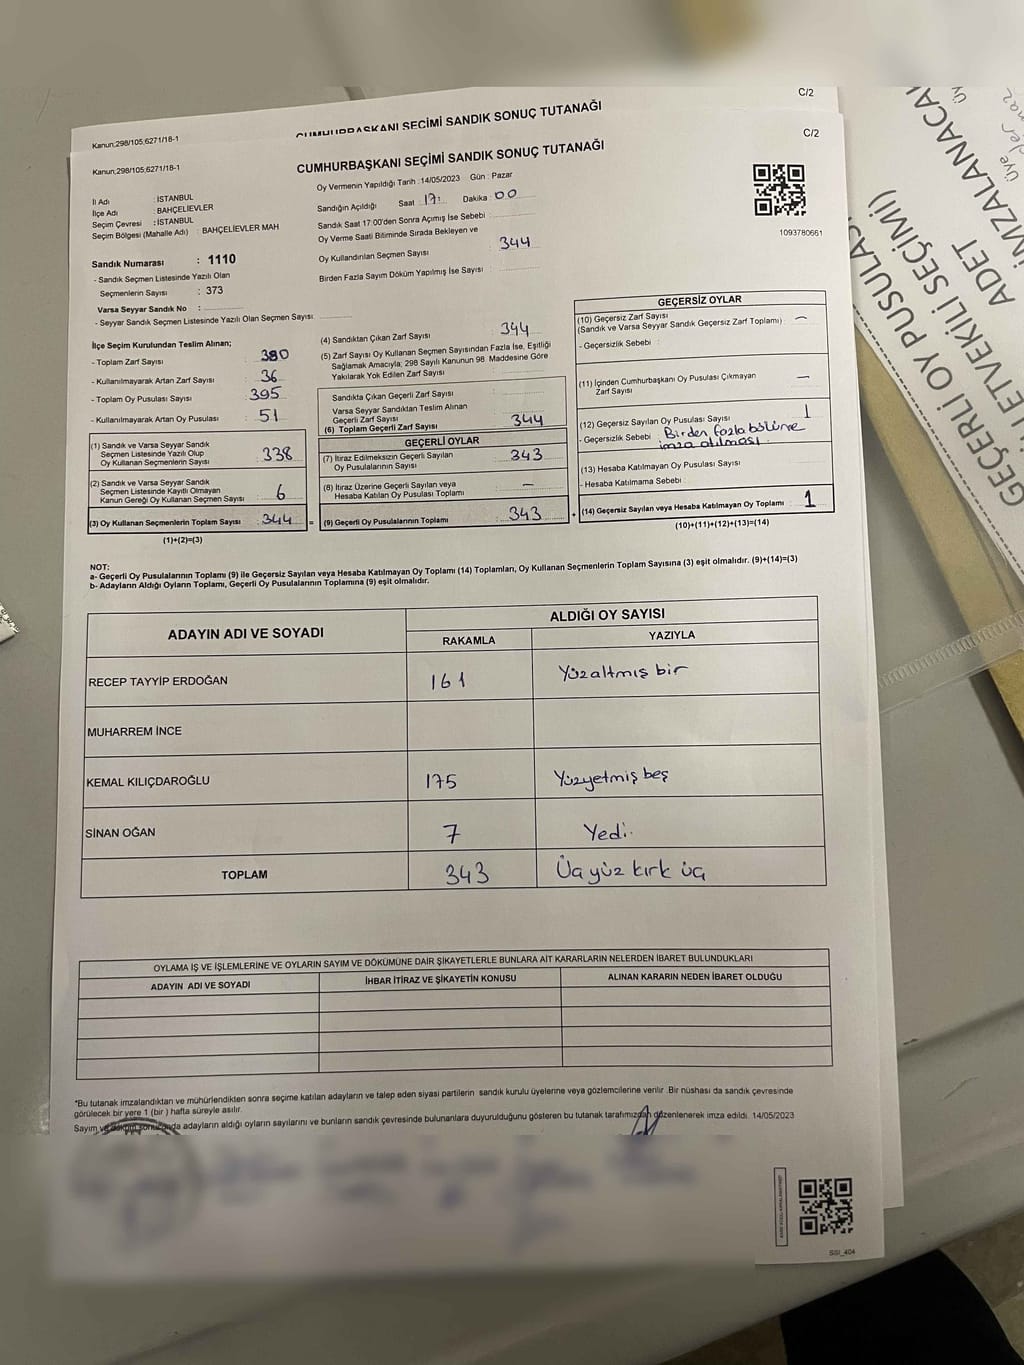 C/2
Kanun;298/105;6271/18-1
CUMHURBAŞKANI SEÇİMİ SANDIK SONUÇ TUTANAĞI
C/2
Kanun;298/105;6271/18-1
CUMHURBAŞKANI SEÇİMİ SANDIK SONUÇ TUTANAĞI
Oy Vermenin Yapıldığı Tarih :14/05/2023 Gün : Pazar
İl Adı : İSTANBUL
İlçe Adı : BAHÇELİEVLER
Seçim Çevresi : İSTANBUL
Seçim Bölgesi (Mahalle Adı) : BAHÇELİEVLER MAH
Sandığın Açıldığı Saat 17: Dakika 00
Sandık Saat 17:00'den Sonra Açımış İse Sebebi :
Oy Verme Saati Bitiminde Sırada Bekleyen ve
Oy Kullandırılan Seçmen Sayısı : 344
Birden Fazla Sayım Döküm Yapılmış İse Sayısı :
1093780661
Sandık Numarası : 1110
- Sandık Seçmen Listesinde Yazılı Olan
Seçmenlerin Sayısı : 373
Varsa Seyyar Sandık No :
- Seyyar Sandık Seçmen Listesinde Yazılı Olan Seçmen Sayısı:
İlçe Seçim Kurulundan Teslim Alınan;
- Toplam Zarf Sayısı : 380
- Kullanılmayarak Artan Zarf Sayısı : 36
- Toplam Oy Pusulası Sayısı : 395
- Kullanılmayarak Artan Oy Pusulası : 51
(1) Sandık ve Varsa Seyyar Sandık
Seçmen Listesinde Yazılı Olup
Oy Kullanan Seçmenlerin Sayısı : 338
(2) Sandık ve Varsa Seyyar Sandık
Seçmen Listesinde Kayıtlı Olmayan
Kanun Gereği Oy Kullanan Seçmen Sayısı : 6
(3) Oy Kullanan Seçmenlerin Toplam Sayısı : 344 =
(1)+(2)=(3)
(4) Sandıktan Çıkan Zarf Sayısı : 344
(5) Zarf Sayısı Oy Kullanan Seçmen Sayısından Fazla İse, Eşitliği
Sağlamak Amacıyla; 298 Sayılı Kanunun 98. Maddesine Göre
Yakılarak Yok Edilen Zarf Sayısı :
Sandıkta Çıkan Geçerli Zarf Sayısı :
Varsa Seyyar Sandıktan Teslim Alınan
Geçerli Zarf Sayısı :
(6) Toplam Geçerli Zarf Sayısı : 344
GEÇERLİ OYLAR
(7) İtiraz Edilmeksizin Geçerli Sayılan
Oy Pusulalarının Sayısı : 343
(8) İtiraz Üzerine Geçerli Sayılan veya
Hesaba Katılan Oy Pusulası Toplamı : –
(9) Geçerli Oy Pusulalarının Toplamı : 343 +
GEÇERSİZ OYLAR
(10) Geçersiz Zarf Sayısı
(Sandık ve Varsa Seyyar Sandık Geçersiz Zarf Toplamı) : –
- Geçersizlik Sebebi :
(11) İçinden Cumhurbaşkanı Oy Pusulası Çıkmayan
Zarf Sayısı : –
(12) Geçersiz Sayılan Oy Pusulası Sayısı : 1
- Geçersizlik Sebebi : Birden fazla bölüme
imza atılması
(13) Hesaba Katılmayan Oy Pusulası Sayısı :
- Hesaba Katılmama Sebebi :
(14) Geçersiz Sayılan veya Hesaba Katılmayan Oy Toplamı : 1
(10)+(11)+(12)+(13)=(14)
NOT:
a- Geçerli Oy Pusulalarının Toplamı (9) ile Geçersiz Sayılan veya Hesaba Katılmayan Oy Toplamı (14) Toplamları, Oy Kullanan Seçmenlerin Toplam Sayısına (3) eşit olmalıdır. (9)+(14)=(3)
b- Adayların Aldığı Oyların Toplamı, Geçerli Oy Pusulalarının Toplamına (9) eşit olmalıdır.
ADAYIN ADI VE SOYADI
ALDIĞI OY SAYISI
RAKAMLA YAZIYLA
RECEP TAYYİP ERDOĞAN 161 Yüzaltmış bir
MUHARREM İNCE
KEMAL KILIÇDAROĞLU 175 Yüzyetmiş beş
SİNAN OĞAN 7 Yedi.
TOPLAM 343 Üçyüz kırk üç
OYLAMA İŞ VE İŞLEMLERİNE VE OYLARIN SAYIM VE DÖKÜMÜNE DAİR ŞİKAYETLERLE BUNLARA AİT KARARLARIN NELERDEN İBARET BULUNDUKLARI
ADAYIN ADI VE SOYADI İHBAR İTİRAZ VE ŞİKAYETİN KONUSU ALINAN KARARIN NEDEN İBARET OLDUĞU
*Bu tutanak imzalandıktan ve mühürlendikten sonra seçime katılan adayların ve talep eden siyasi partilerin sandık kurulu üyelerine veya gözlemcilerine verilir. Bir nüshası da sandık çevresinde
görülecek bir yere 1 (bir ) hafta süreyle asılır.
Sayım ve döküm sonucunda adayların aldığı oyların sayılarını ve bunların sandık çevresinde bulunanlara duyurulduğunu gösteren bu tutanak tarafımızdan düzenlenerek imza edildi. 14/05/2023
SSI_404
GEÇERLİ OY PUSULAS
ADET